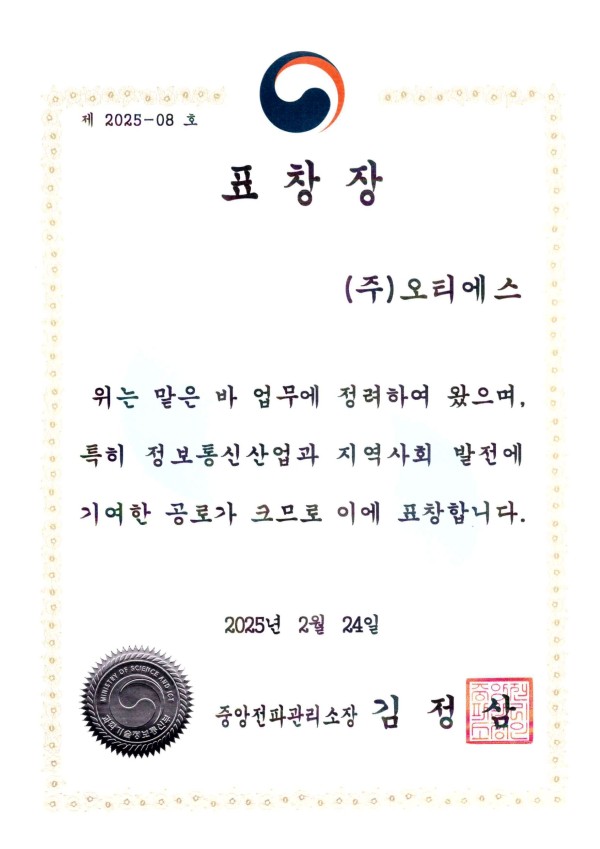 제 2025-08 호
표창장
(주)오티에스
위는 맡은 바 업무에 정려하여 왔으며,
특히 정보통신산업과 지역사회 발전에
기여한 공로가 크므로 이에 표창합니다.
2025년 2월 24일
MINISTRY OF SCIENCE AND ICT
과학기술정보통신부
중앙전파관리소장 김정삼
중앙전
파관리
소장인